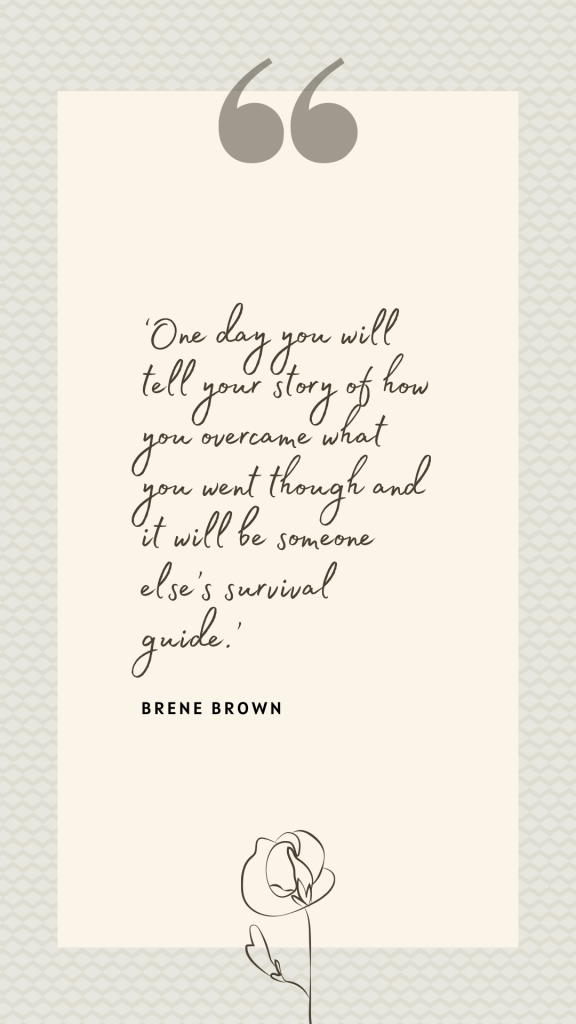 ‘One day you will
tell your story of how
you overcame what
you went though and
it will be someone
else's survival
guide.’
BRENE BROWN